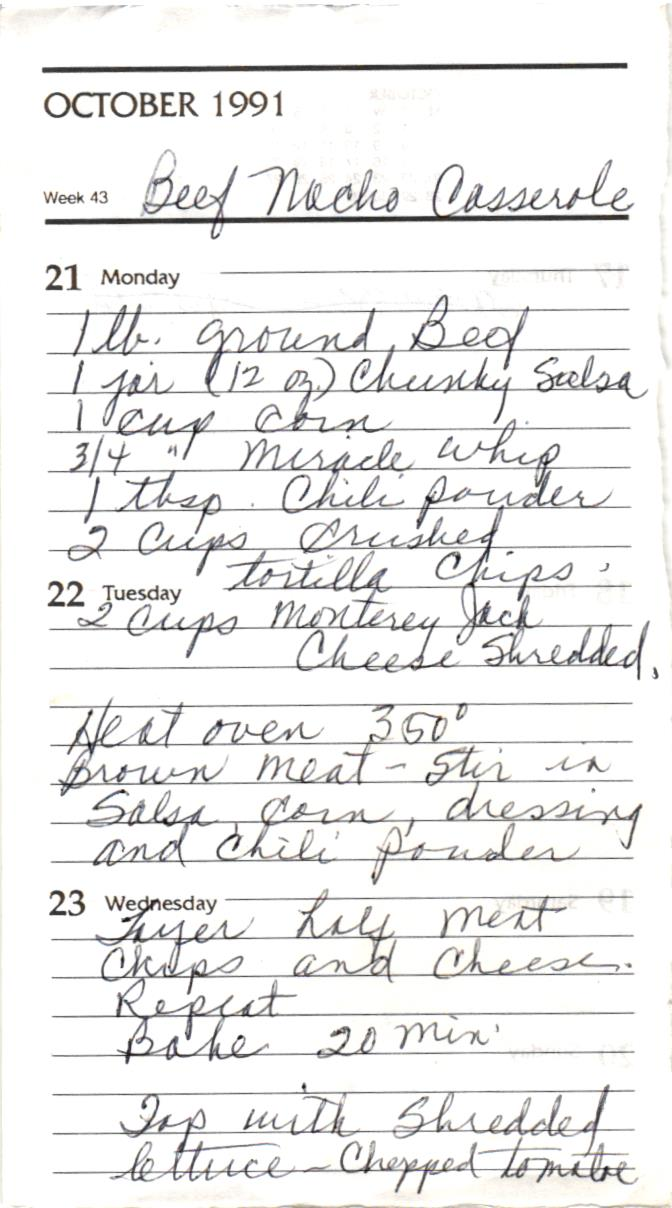 OCTOBER 1991
Week 43 Beef Nacho Casserole
21 Monday
1 lb. ground Beef
1 jar (12 oz.) Chunky Salsa
1 cup corn
3/4 " Miracle whip
1 tbsp. Chili powder
2 Cups Crushed
tortilla Chips.
22 Tuesday
2 Cups Monterey Jack
Cheese Shredded.
Heat oven 350°
Brown meat - Stir in
Salsa, Corn, dressing
and Chili Powder
23 Wednesday
Layer half meat
Chips and Cheese.
Repeat
Bake 20 min.
Top with Shredded
lettuce - Chopped tomatoe